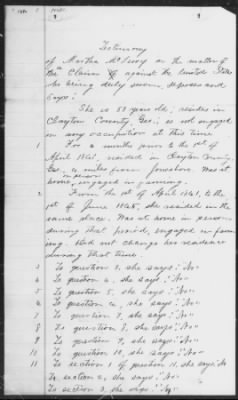 Testimony
of Martha McIvoy in the matter of
her Claim against the United States
who being duly sworn, deposes and
says:
She is 53 years old; resides in
Clayton County, Geo.; is not engaged
in any occupation at this time
1 For 6 months prior to the 1st of
April 1861, resided in Clayton County,
Geo. 2 miles from Jonesboro. Was at
home, in person engaged in farming.
2 From the 1st of April 1861, to the
1st of June 1865, she resided in the
same place. Was at home in person
during that period, engaged in farm-
ing. Did not change her residence
during that time.
3 To question 3, she says: "No"
4 To question 4, she says: "No"
5 To question 5, she says: "No"
6 To question 6, she says: "No"
7 To question 7, she says: "No"
8 To question 8, she says: "No"
9 To question 9, she says: "No"
10 To question 10, she says: "No"
11 To section 1 of question 11, she says: "No
To section 2, she says: "No"
To section 3, she says: "No"